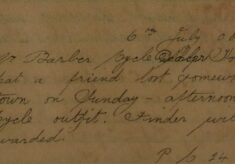 6th July 00
Mr Barber Cycle Dealer
at a friend lost somew
town on Sunday - afternoon
cycle outfit. Finder wil
warded.
P. S. 24